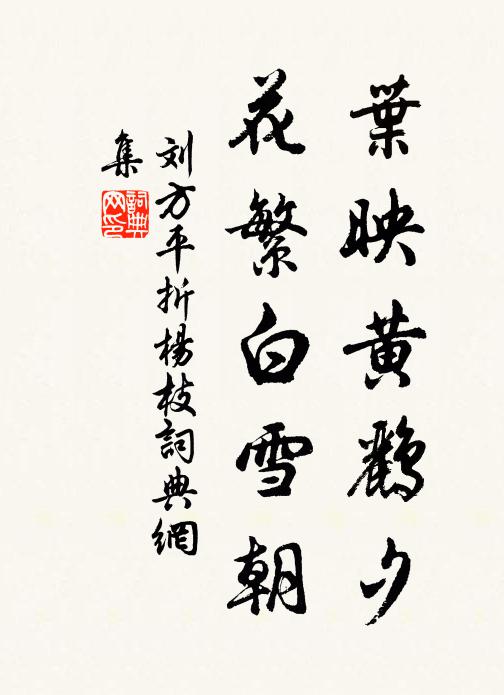 葉映黄鸝夕
花繁白雪朝
刘方平折楊枝詞典網
集
詞典
网印